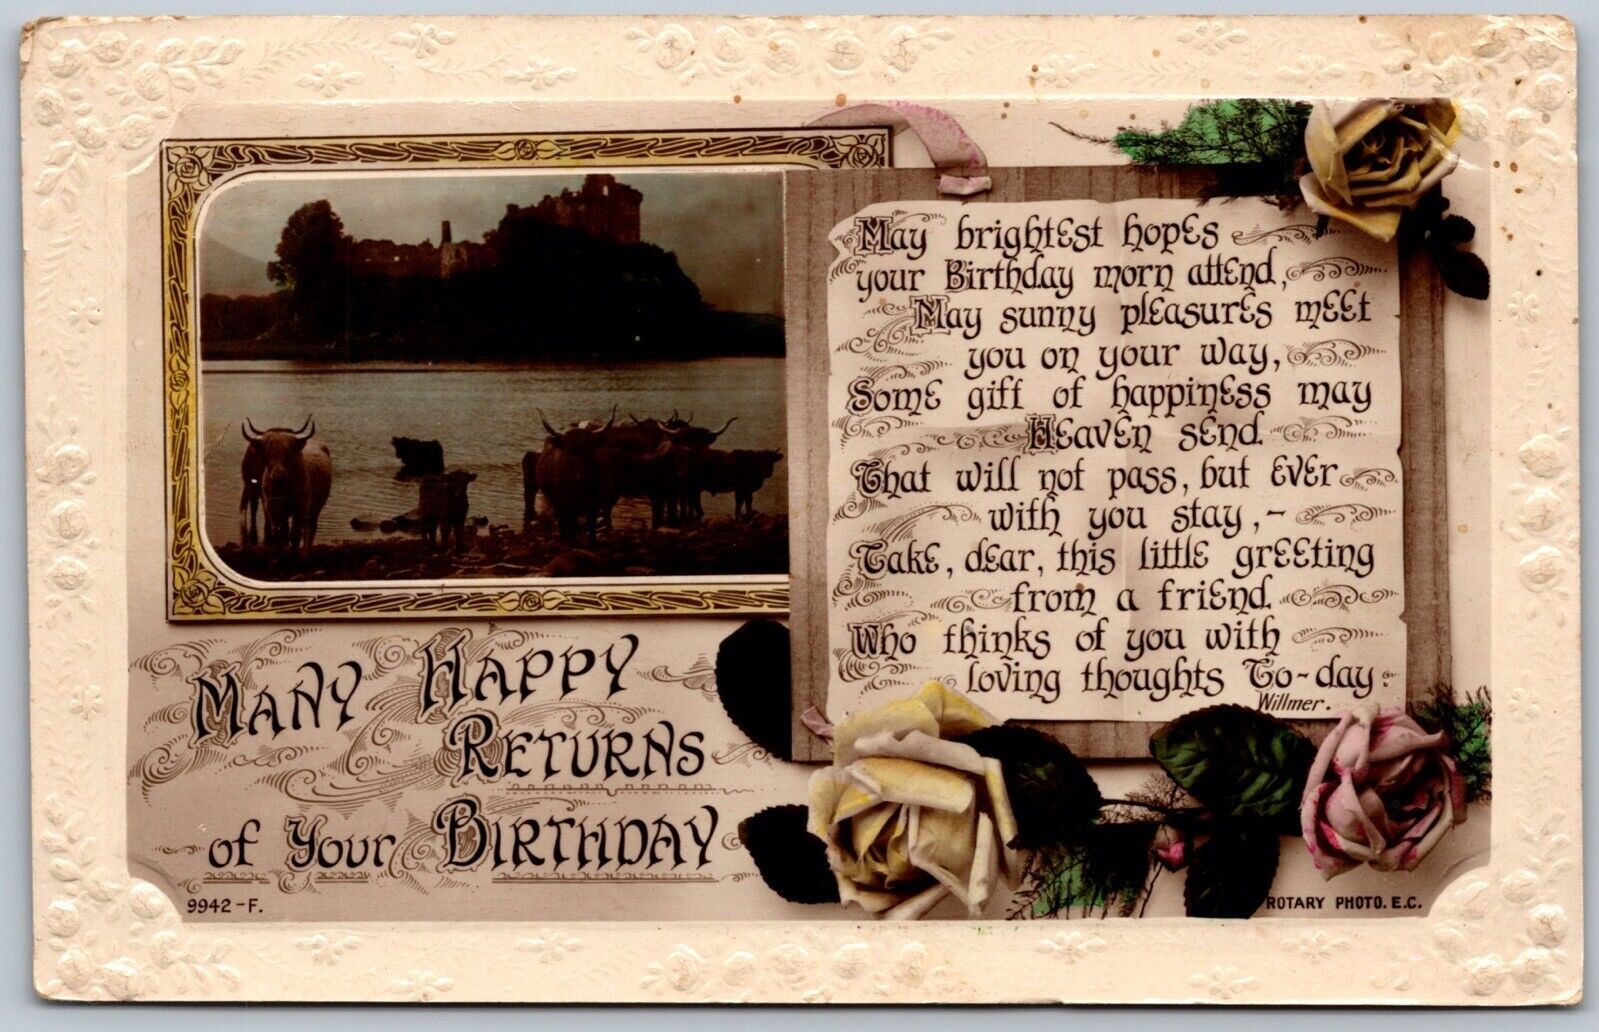 May brightest hopes
your Birthday morn attend,
May sunny pleasures meet
you on your way,
Some gift of happiness may
Heaven send
That will not pass, but ever
with you stay,-
Take, dear, this little greeting
from a friend
Who thinks of you with
loving thoughts To-day.
Willmer.
Many Happy
Returns
of Your Birthday
9942-F.
ROTARY PHOTO. E.C.